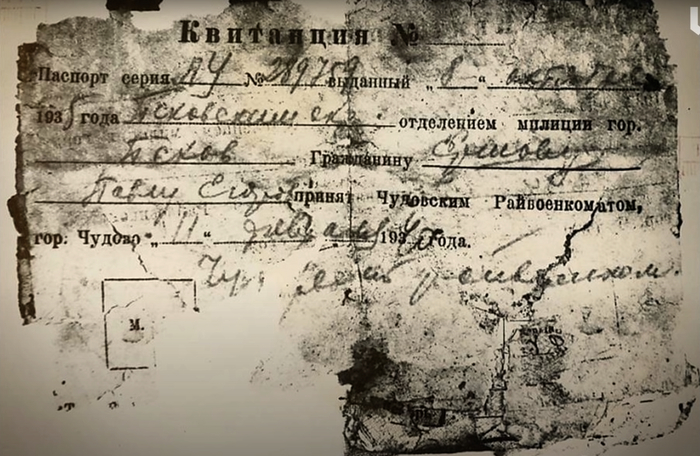 Квитанция №
Паспорт серия АУ № 289759 выданный „8“ октября
1935 года Псковским отделением милиции гор.
Псков Гражданину Ершову
Павлу Егоров принят Чудовским Райвоенкоматом,
гор. Чудово „11“ 193 года.
М.